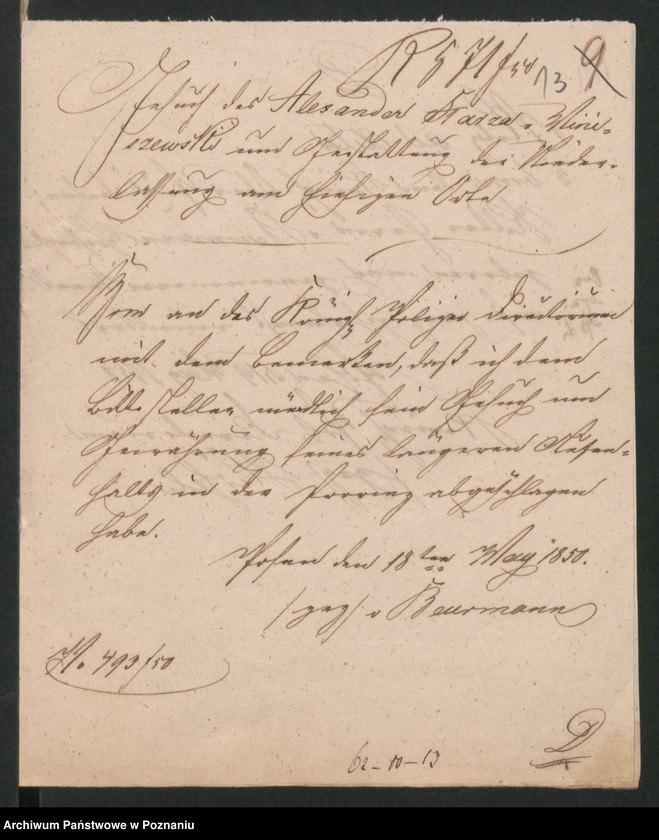 R 571/50 13 9
Gesuch des Alexander Karza v Wini-
szewski um Gestattung der Nieder-
lassung am hiesigen Orte
Brm an das Königl Polizei Directorium
mit dem Bemerken, daß ich dem
Bittsteller mündlich sein Gesuch um
Gewährung seines längeren Aufen-
halts in der Provinz abgeschlagen
habe.
Posen den 18ten May 1850.
/gez/ v Beurmann
No. 493/50
62-10-13
D
Archiwum Państwowe w Poznaniu